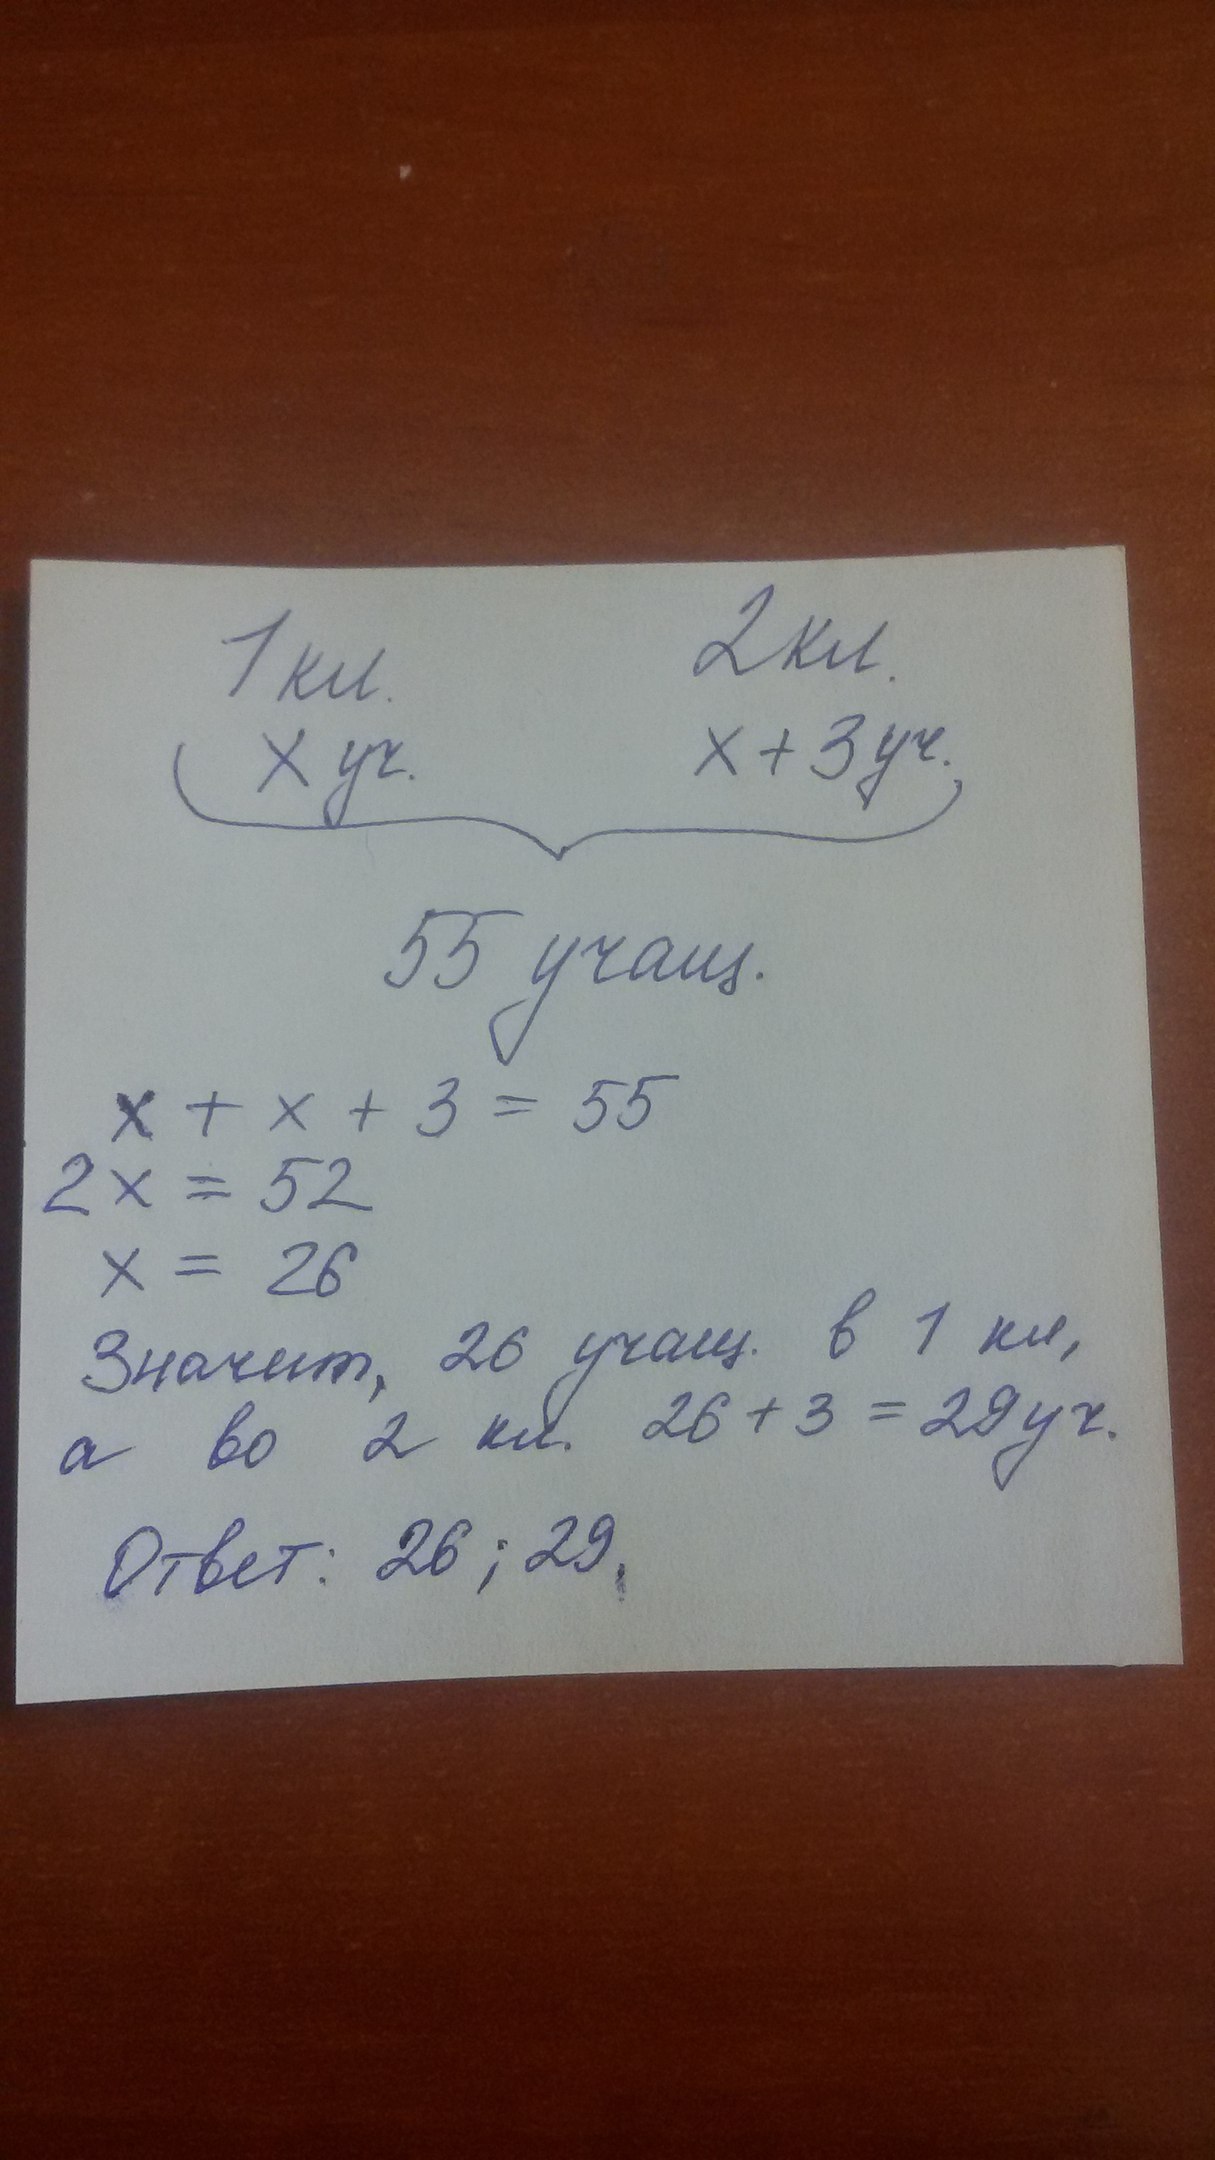 1 кл. 2 кл.
х уч. х + 3 уч.
55 учащ.
х + х + 3 = 55
2х = 52
х = 26
Значит, 26 учащ. в 1 кл,
а во 2 кл. 26 + 3 = 29 уч.
Ответ: 26; 29.